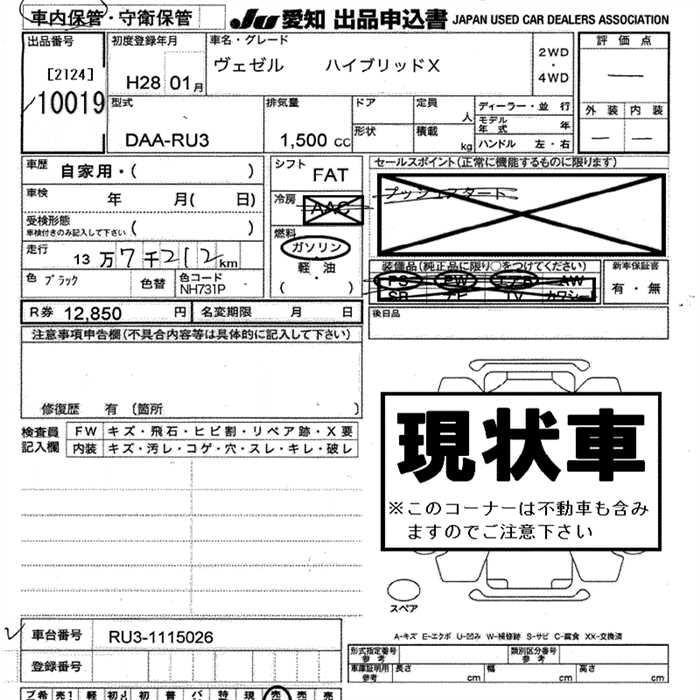 車内保管・守衛保管
JU 愛知 出品申込書 JAPAN USED CAR DEALERS ASSOCIATION
出品番号
[2124]
10019
初度登録年月
H28 01月
車名・グレード
ヴェゼル ハイブリッドX
2WD
・
4WD
評価点
外装 内装
型式
DAA-RU3
排気量
1,500 cc
ドア
定員
人
形状
積載
kg
ディーラー・並 行
モデル年式 年
ハンドル 左・右
車歴 自家用・( )
車検 年 月( 日)
受検形態
車検付きのみ記入して下さい ( )
走行 13万7千212km
色 ブラック 色替 色コード NH731P
シフト FAT
冷房 AAC
燃料
ガソリン
軽・油
( )
セールスポイント(正常に機能するものに限ります)
プッシュスタート
装備品(純正品に限り○をつけてください)
PS PW エアB AW
SR ナビ TV カワシート
新車保証書
有・無
R券 12,850 円 名変期限 月 日
後日品
注意事項申告欄(不具合内容等は具体的に記入して下さい)
修復歴 有 〔箇所 〕
検査員記入欄
FW キズ・飛石・ヒビ割・リペア跡・X要
内装 キズ・汚レ・コゲ・穴・スレ・キレ・破レ
現状車
※このコーナーは不動車も含み
ますのでご注意下さい
スペア
A-キズ E-エクボ U-凹み W-補修跡 S-サビ C-腐食 XX-交換済
車台番号 RU3-1115026
登録番号
形式指定番号 参考
類別区分番号 参考
車庫証明用 参考 長さ cm 幅 cm 高さ cm